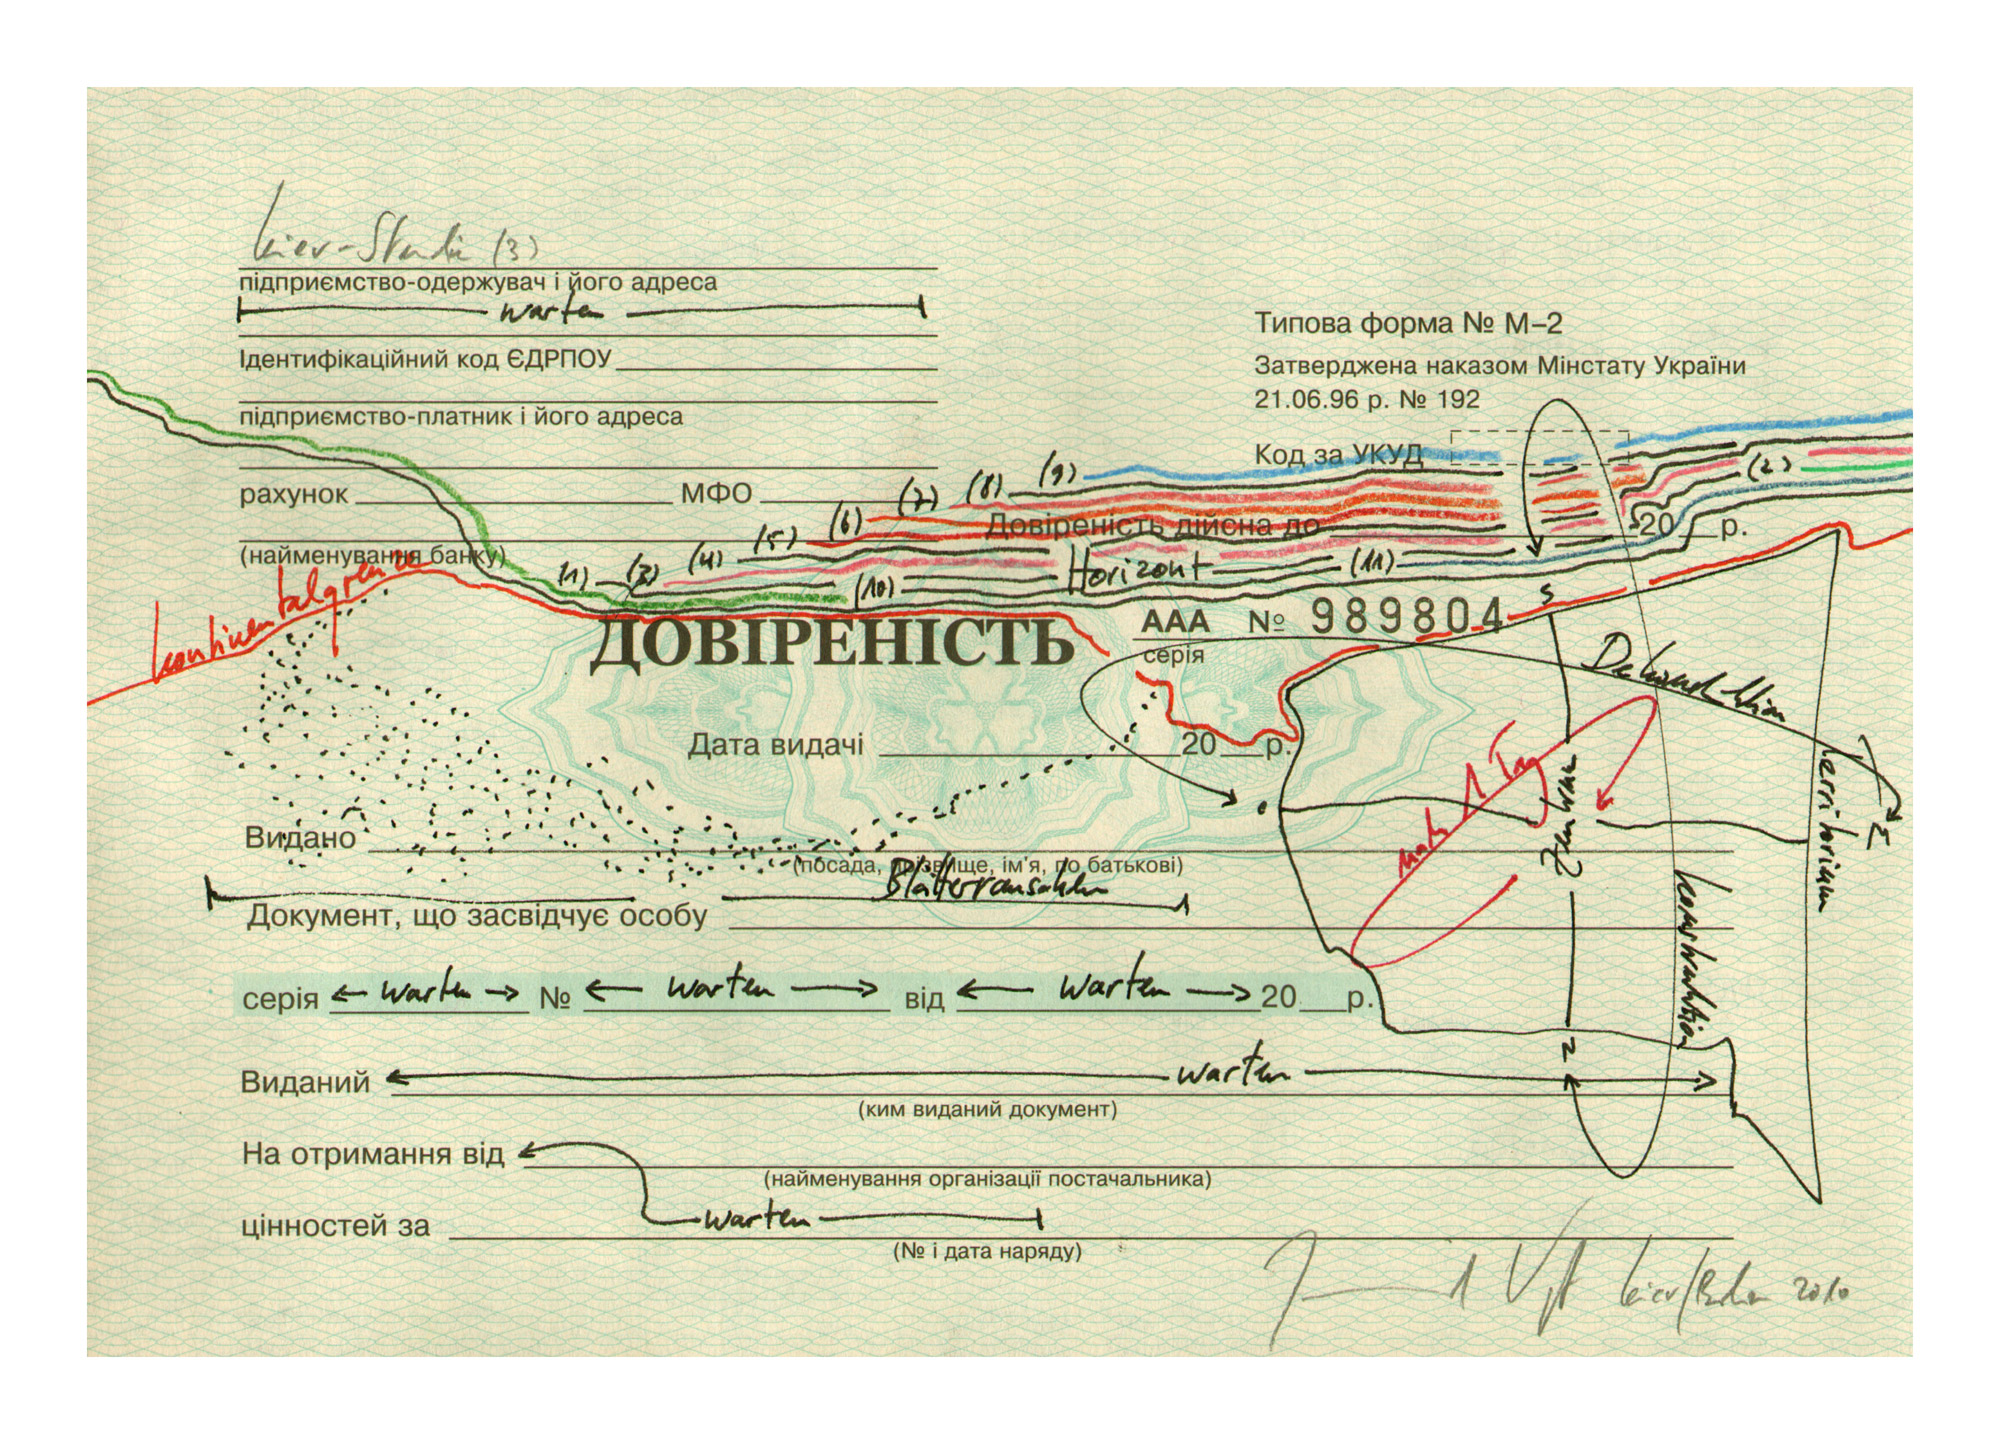 Kiev-Studie (3)
підприємство-одержувач і його адреса
warten
Типова форма № М–2
Ідентифікаційний код ЄДРПОУ
Затверджена наказом Мінстату України
21.06.96 р. № 192
підприємство-платник і його адреса
Код за УКУД
(9)
(8)
(7)
(2)
рахунок МФО
(6)
Довіреність дійсна до 20 р.
(5)
(4)
(найменування банку)
(1) (3)
(10)
Horizont
(11)
Kontinentalgrenze
S
ДОВІРЕНІСТЬ
ААА № 989804
серія
Dekonstruktion
Дата видачі 20 р.
nach 1 Tag
Territorium
Видано
(посада, прізвище, ім'я, по батькові)
Konstruktion
Документ, що засвідчує особу
серія warten № warten від warten 20 р.
Виданий warten
(ким виданий документ)
На отримання від
(найменування організації постачальника)
цінностей за warten
(№ і дата наряду)
Kiev/Berlin 2010